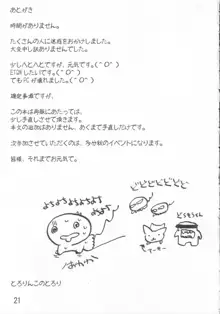 あとがき
時間がありません。
たくさんの人に迷惑をおかけしました。
大変申し訳ありませんでした。
少しへとへとですが、元気です。(^O^)
ETQWしたいです。(^O^)
でもPCが壊れました。(^O^)
諸般多難ですが、
この本は再販にあたっては、
少し手直しさせて頂きます。
本文の追加はありません、あくまで手直しだけです。
次出させていただくのは、多分秋のイベントになります。
皆様、それまでお元気で。
よちよちよちよちよち
どどどどどどど
とろりんこのとろり
21